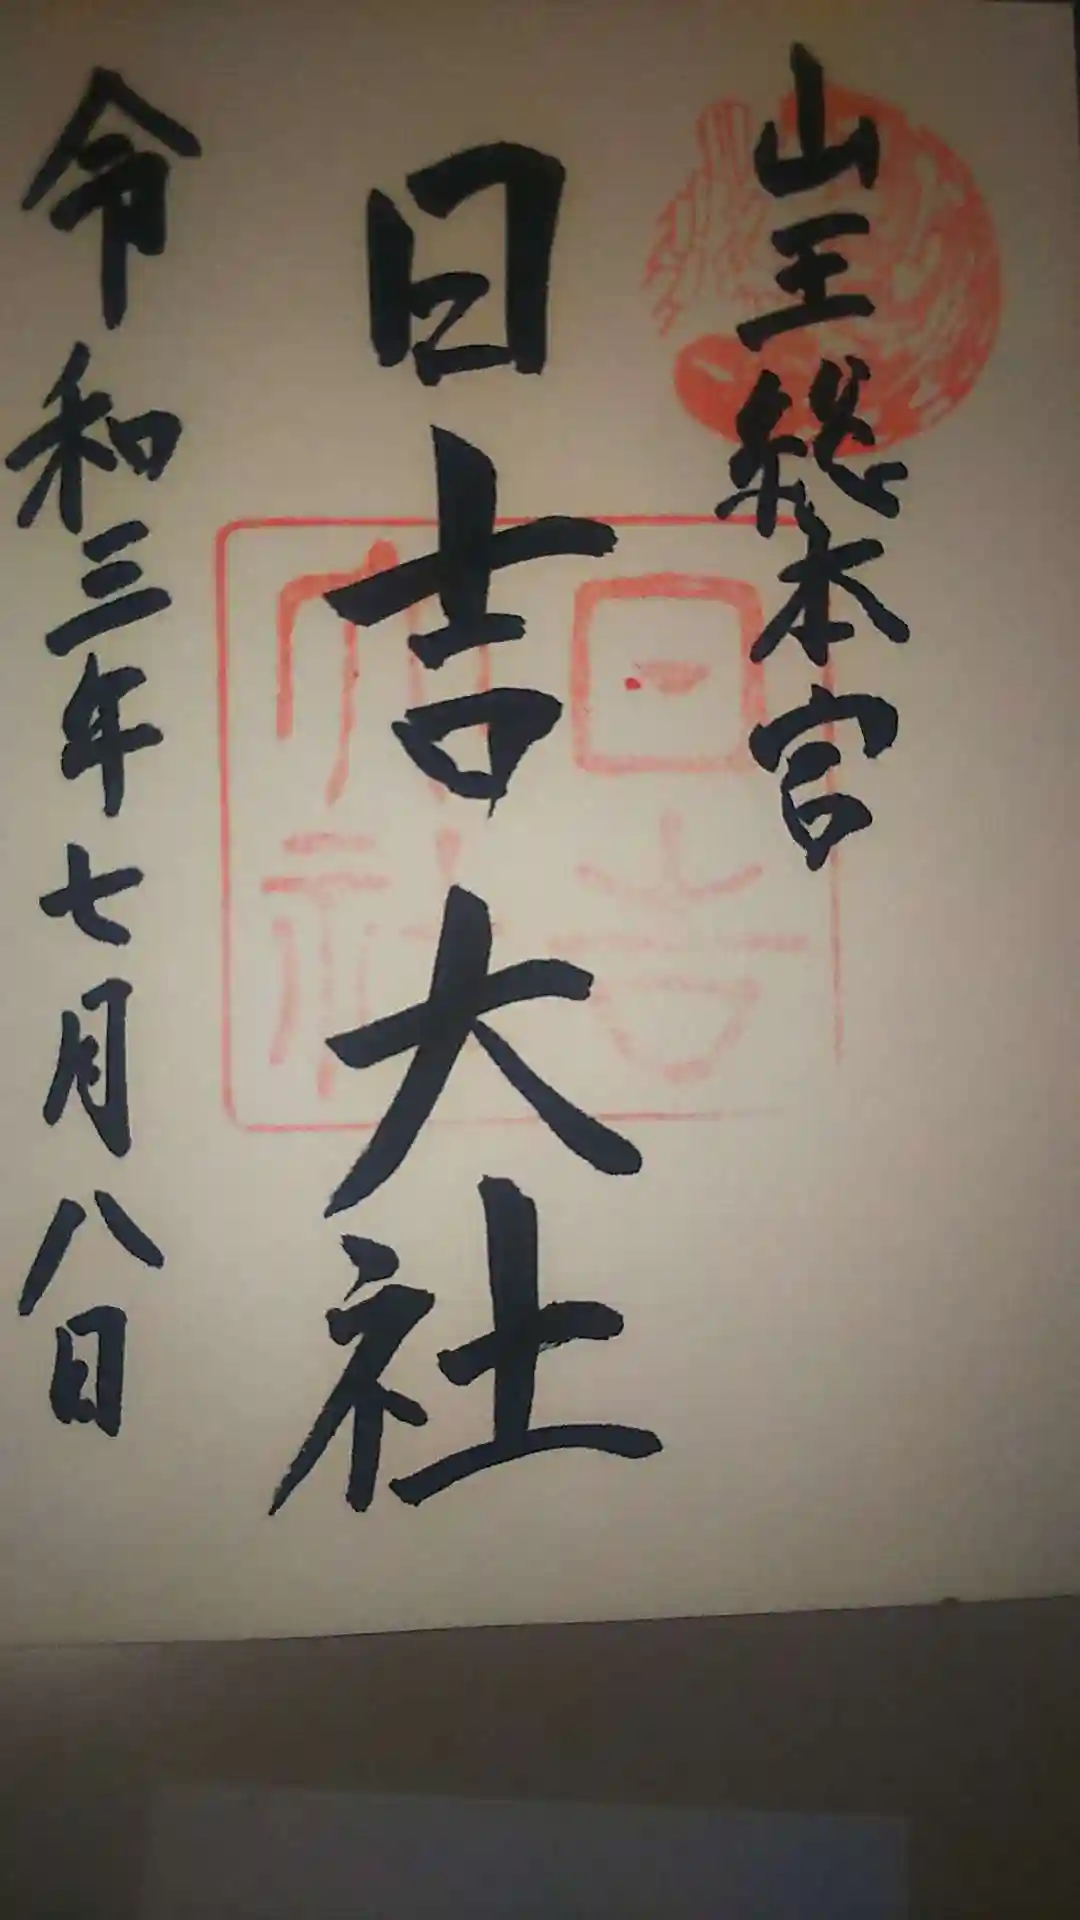 山王総本宮
日吉大社
令和三年七月八日
日吉
大社